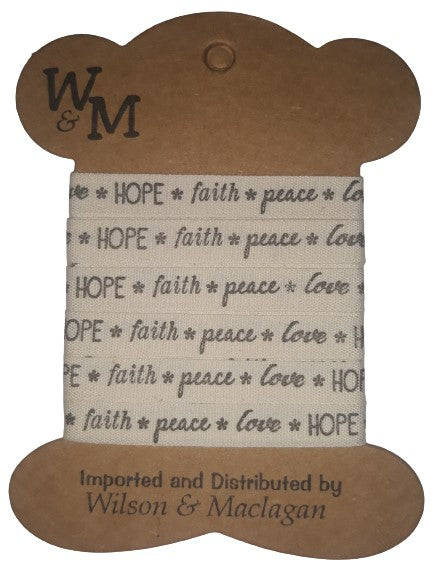 W
& M
ve * HOPE * faith * peace * lo
* HOPE * faith * peace * love
* HOPE * faith * peace * love *
OPE * faith * peace * love * H
PE * faith * peace * love * HOP
* faith * peace * love * HOPE
Imported and Distributed by
Wilson & Maclagan